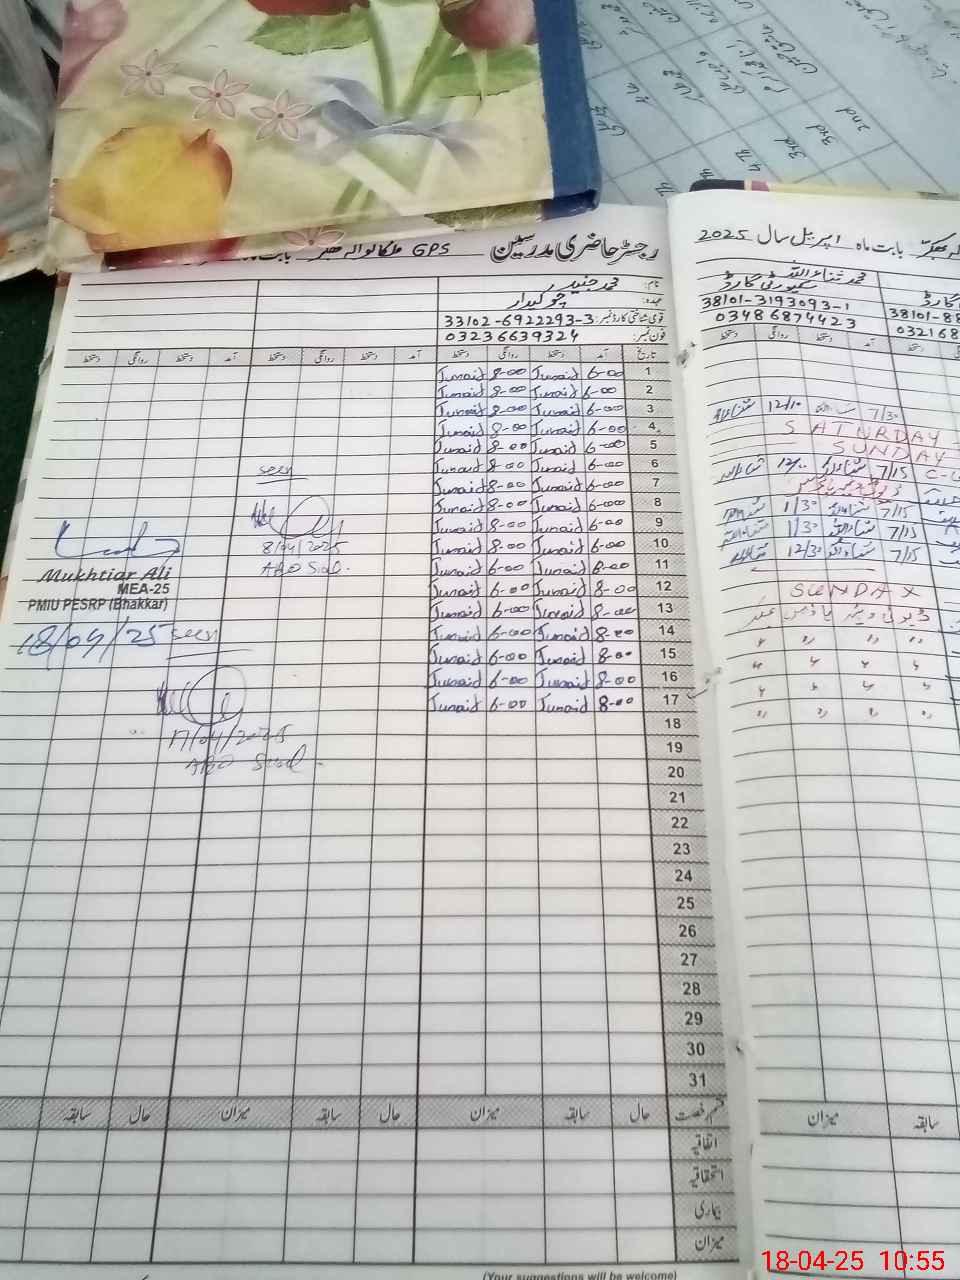 رجسٹر حاضری مدرسین GPS
نام: محمد جنید
عہدہ: چوکیدار
قومی شناختی کارڈ نمبر: 33102-6922293-3
فون نمبر: 03236639324
تاریخ آمد دستخط روانگی دستخط آمد دستخط روانگی دستخط آمد دستخط روانگی دستخط
1 6-00 Junaid 8-00 Junaid
2 6-00 Junaid 8-00 Junaid
3 6-00 Junaid 8-00 Junaid
4 6-00 Junaid 8-00 Junaid
5 6-00 Junaid 8-00 Junaid
6 6-00 Junaid 8-00 Junaid
7 6-00 Junaid 8-00 Junaid
8 6-00 Junaid 8-00 Junaid
9 6-00 Junaid 8-00 Junaid
10 6-00 Junaid 8-00 Junaid
11 8-00 Junaid 6-00 Junaid
12 8-00 Junaid 6-00 Junaid
13 8-00 Junaid 6-00 Junaid
14 8-00 Junaid 6-00 Junaid
15 8-00 Junaid 6-00 Junaid
16 8-00 Junaid 6-00 Junaid
17 8-00 Junaid 6-00 Junaid
18
19
20
21
22
23
24
25
26
27
28
29
30
31
seen
8/04/2025
Mukhtiar Ali
MEA-25
PMIU PESRP (Bhakkar)
18/04/25
seen
17/04/2025
قسم رخصت حال سابقہ میزان حال سابقہ میزان حال سابقہ
اتفاقیہ
استحقاقیہ
بیماری
میزان
(Your suggestions will be welcome)
بابت ماہ اپریل سال 2025
محمد ثناء اللہ
سکیورٹی گارڈ
38101-3193093-1
03486874423
گارڈ
38101-88
032168
آمد دستخط روانگی دستخط
7/30 12/10
SATURDAY
SUNDAY
7/15 12/00
7/15 1/30
7/15 1/30
7/15 12/30
SUNDAY
میزان سابقہ
2nd
3rd
3rd
4th
18-04-25 10:55